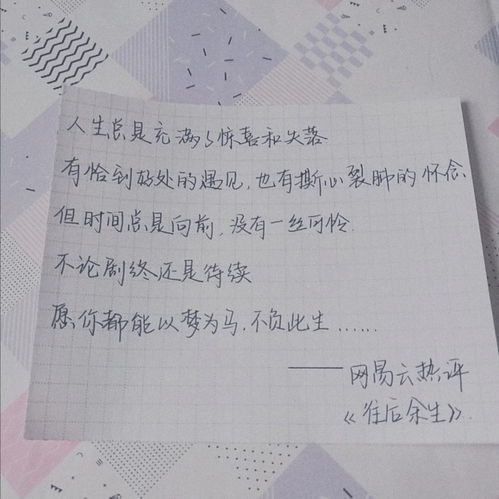 人生总是充满了惊喜和失落
有恰到好处的遇见,也有撕心裂肺的怀念
但时间总是向前,没有一丝可怜.
不论剧终还是待续
愿你都能以梦为马,不负此生......
——网易云热评
《往后余生》.